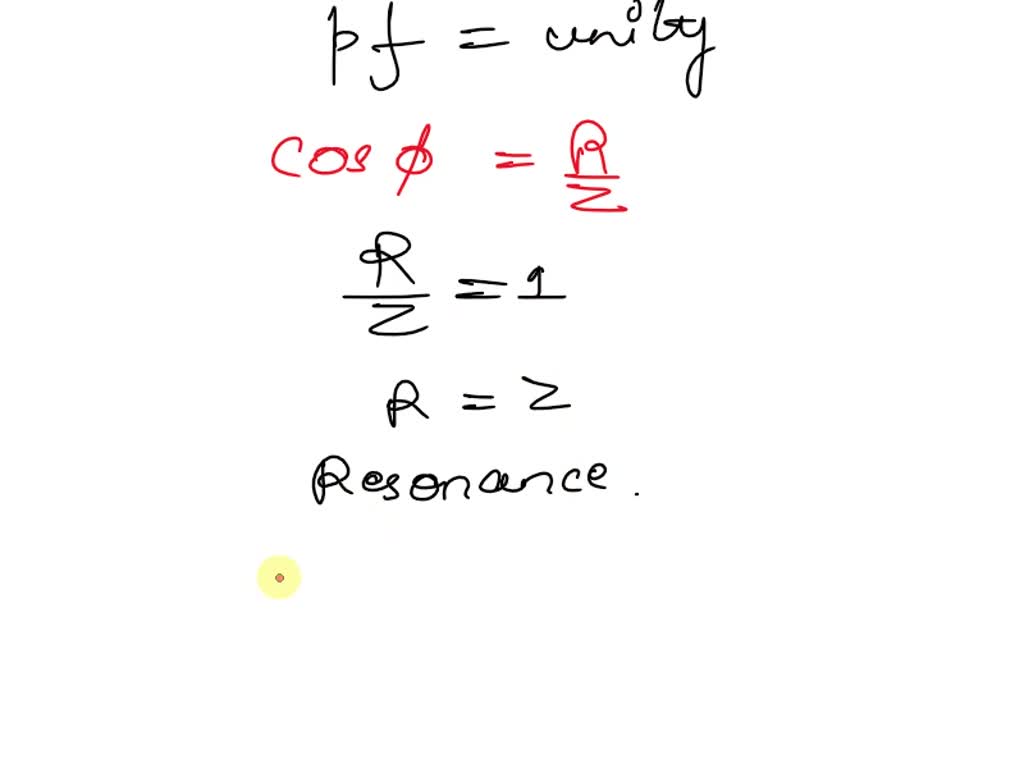 pf = unity
cos ϕ = R/Z
R/Z = 1
R = Z
Resonance.